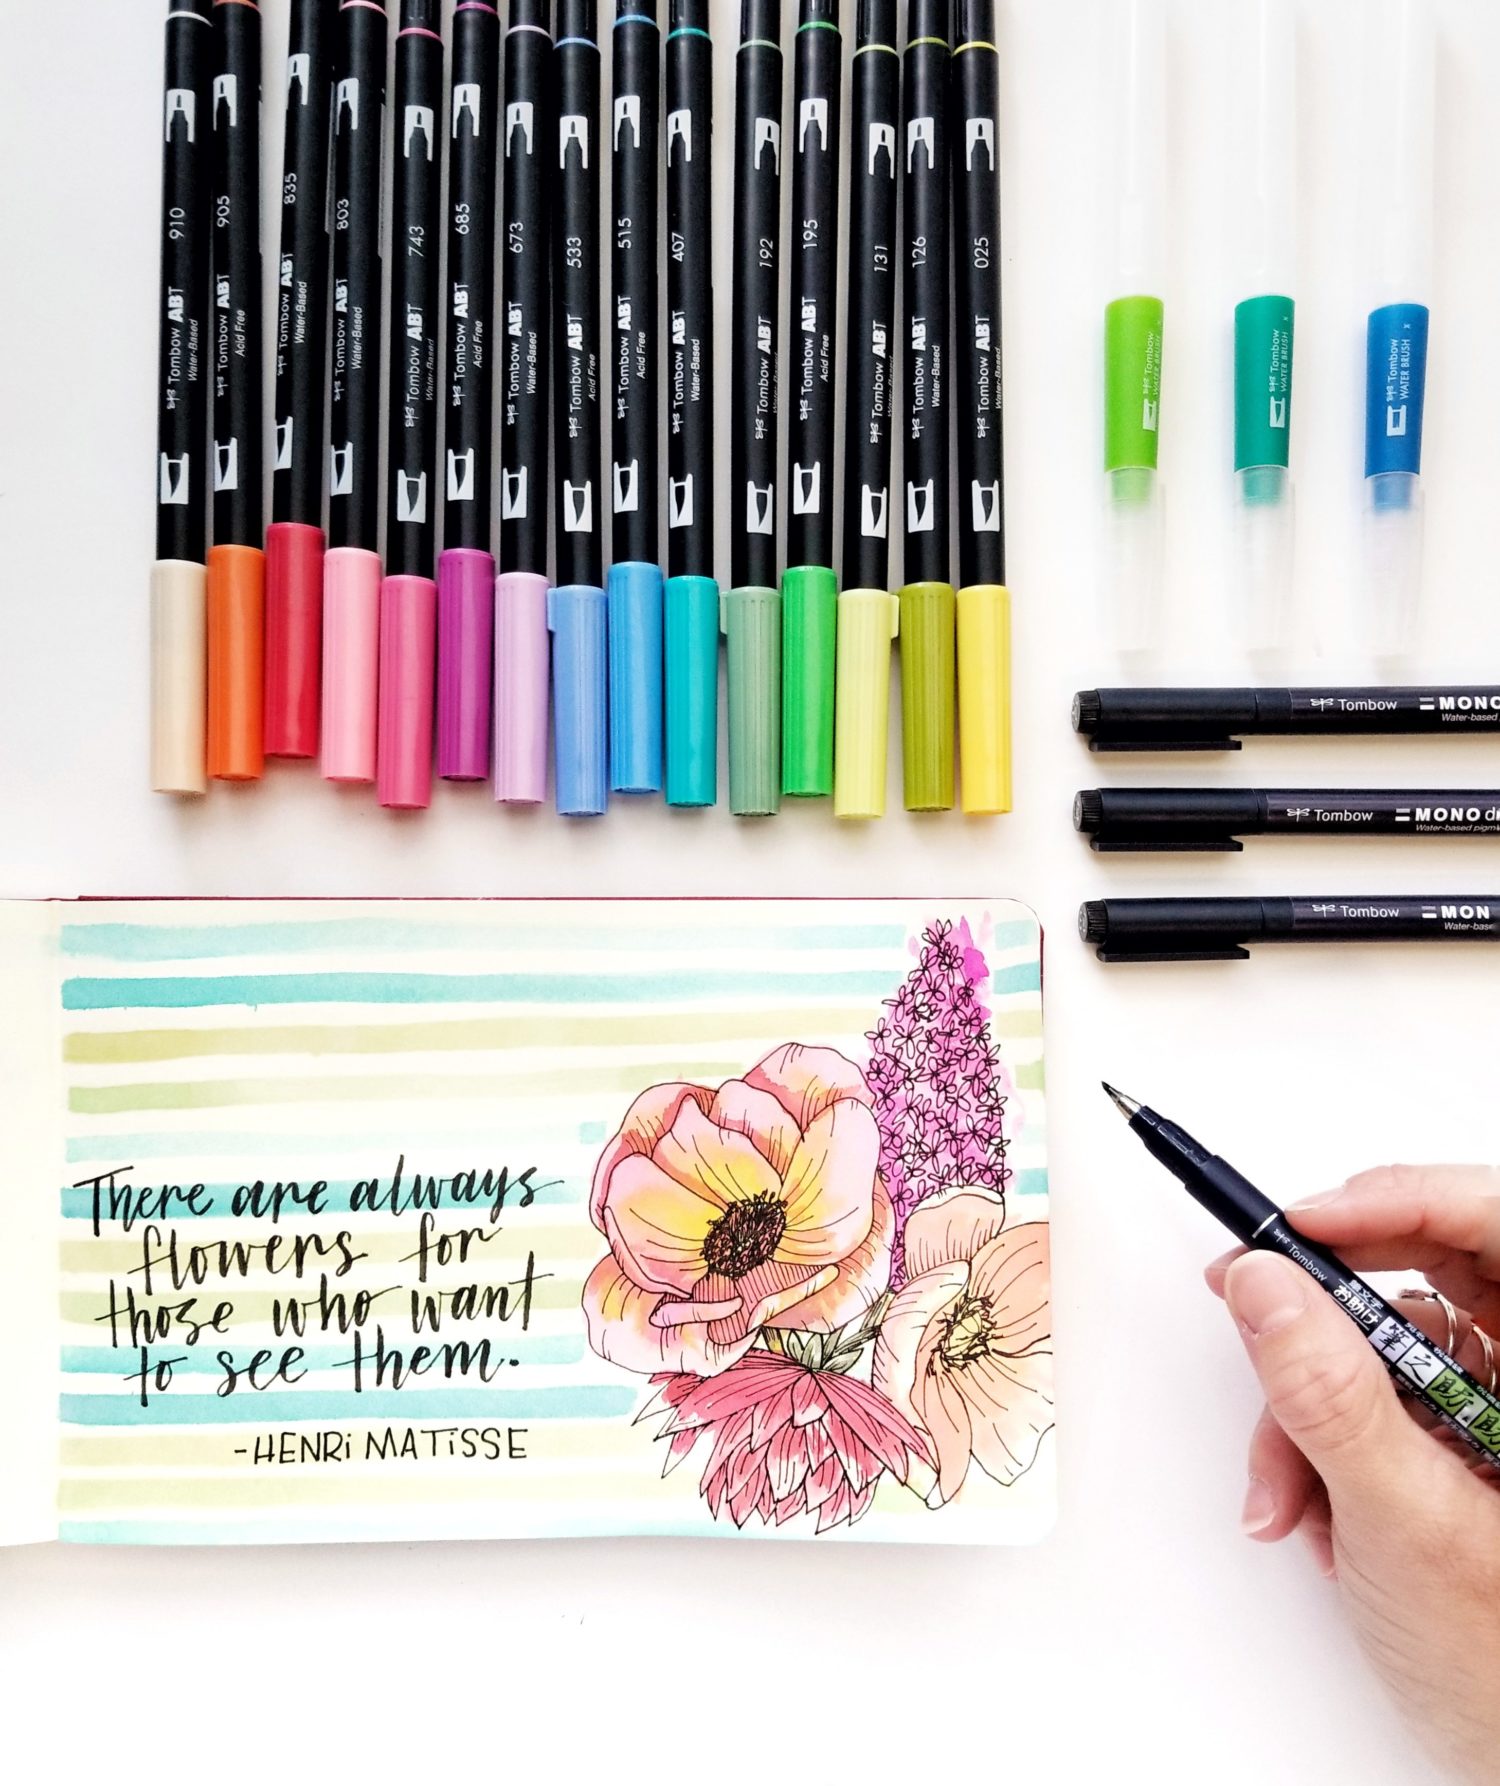 910 Tombow ABT Water-Based
905 Tombow ABT Acid Free
835 Tombow ABT Water-Based
803 Tombow ABT Water-Based
743 Tombow ABT Water-Based
685 Tombow ABT Acid Free
673 Tombow ABT Water-Based
533 Tombow ABT Acid Free
515 Tombow ABT Acid Free
407 Tombow ABT Water-Based
192 Tombow ABT Water-Based
195 Tombow ABT Acid Free
131 Tombow ABT Water-Based
126 Tombow ABT Water-Based
025 Tombow ABT Acid Free
Tombow
WATER BRUSH
Tombow
WATER BRUSH
Tombow
WATER BRUSH
Tombow MONO
Water-based
Tombow MONO dr
Water-based pigm
Tombow MON
Water-base
There are always
flowers for
those who want
to see them.
-HENRi MATiSSE
Tombow
筆之助